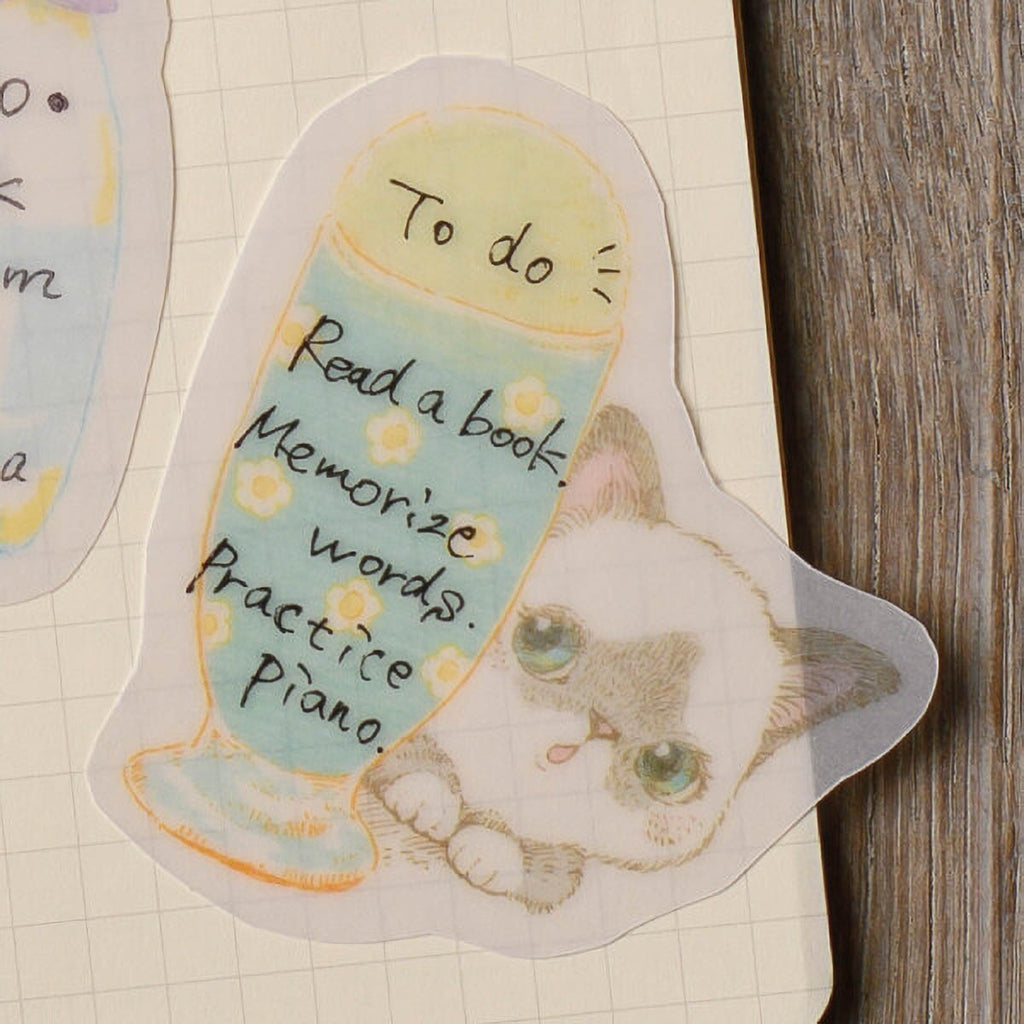 To do
Read a book.
Memorize
words.
Practice
piano.